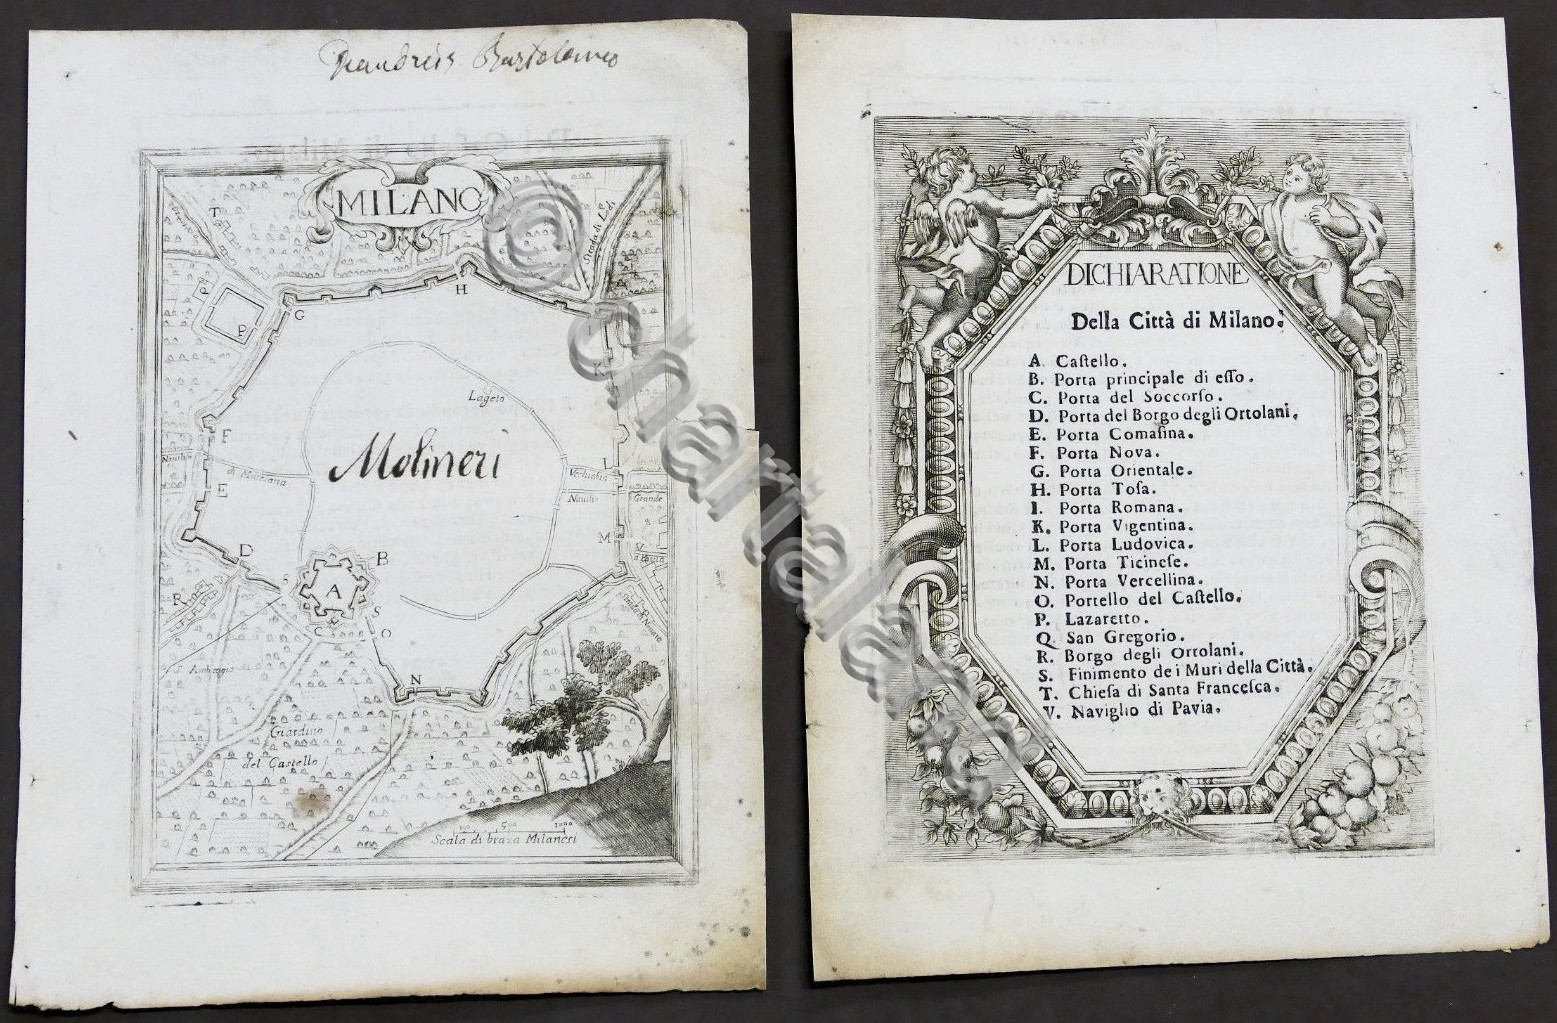 Bartolomeo
MILANO
T
Strada di Lodi
Q
P
G
H
K
Lageto
Molineri
F
E
I
Vechiabia
Navilio
Grande
M
V
D
B
A
S
R
S
C
O
S. Ambrogio
N
Giardino
del Castello
500
1000
Scala di braza Milanesi
DICHIARATIONE
Della Città di Milano.
A. Caſtello.
B. Porta principale di eſſo.
C. Porta del Soccorſo.
D. Porta del Borgo degli Ortolani.
E. Porta Comaſina.
F. Porta Nova.
G. Porta Orientale.
H. Porta Toſa.
I. Porta Romana.
K. Porta Vigentina.
L. Porta Ludovica.
M. Porta Ticineſe.
N. Porta Vercellina.
O. Portello del Caſtello.
P. Lazaretto.
Q. San Gregorio.
R. Borgo degli Ortolani.
S. Finimento de i Muri della Città.
T. Chieſa di Santa Franceſca.
V. Naviglio di Pavia.
© chartaland